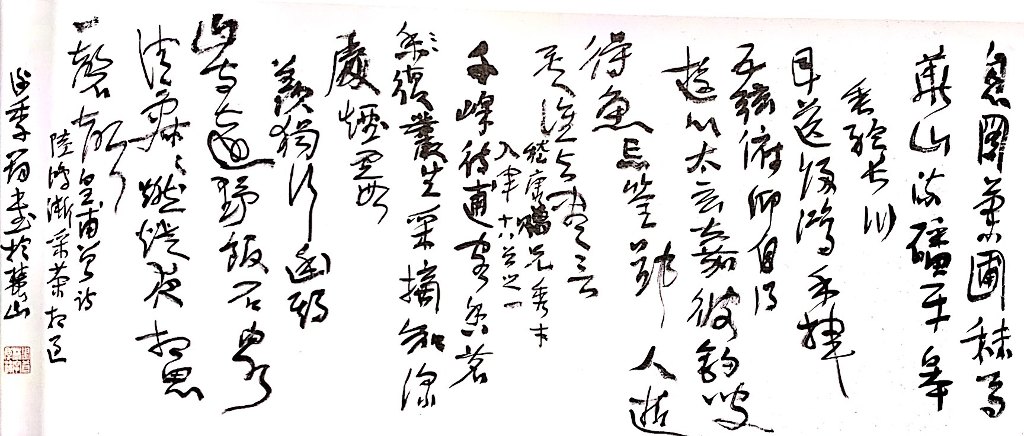 息蘭圃秣馬
華山流磻平皋
垂綸長川
目送歸鴻手揮
五弦俯仰自得
遊心太玄嘉彼釣叟
得魚忘筌郢人逝
矣誰與盡言
嵇康贈兄秀才
入軍十八首之一
千峰待逋客香茗
復叢生采摘知深
處煙霞
羨獨行幽期
山寺遠野飯石泉
清寂寂燃燈夜相思
一磬聲
皇甫曾詩
陸鴻漸采茶相遇
季書於山